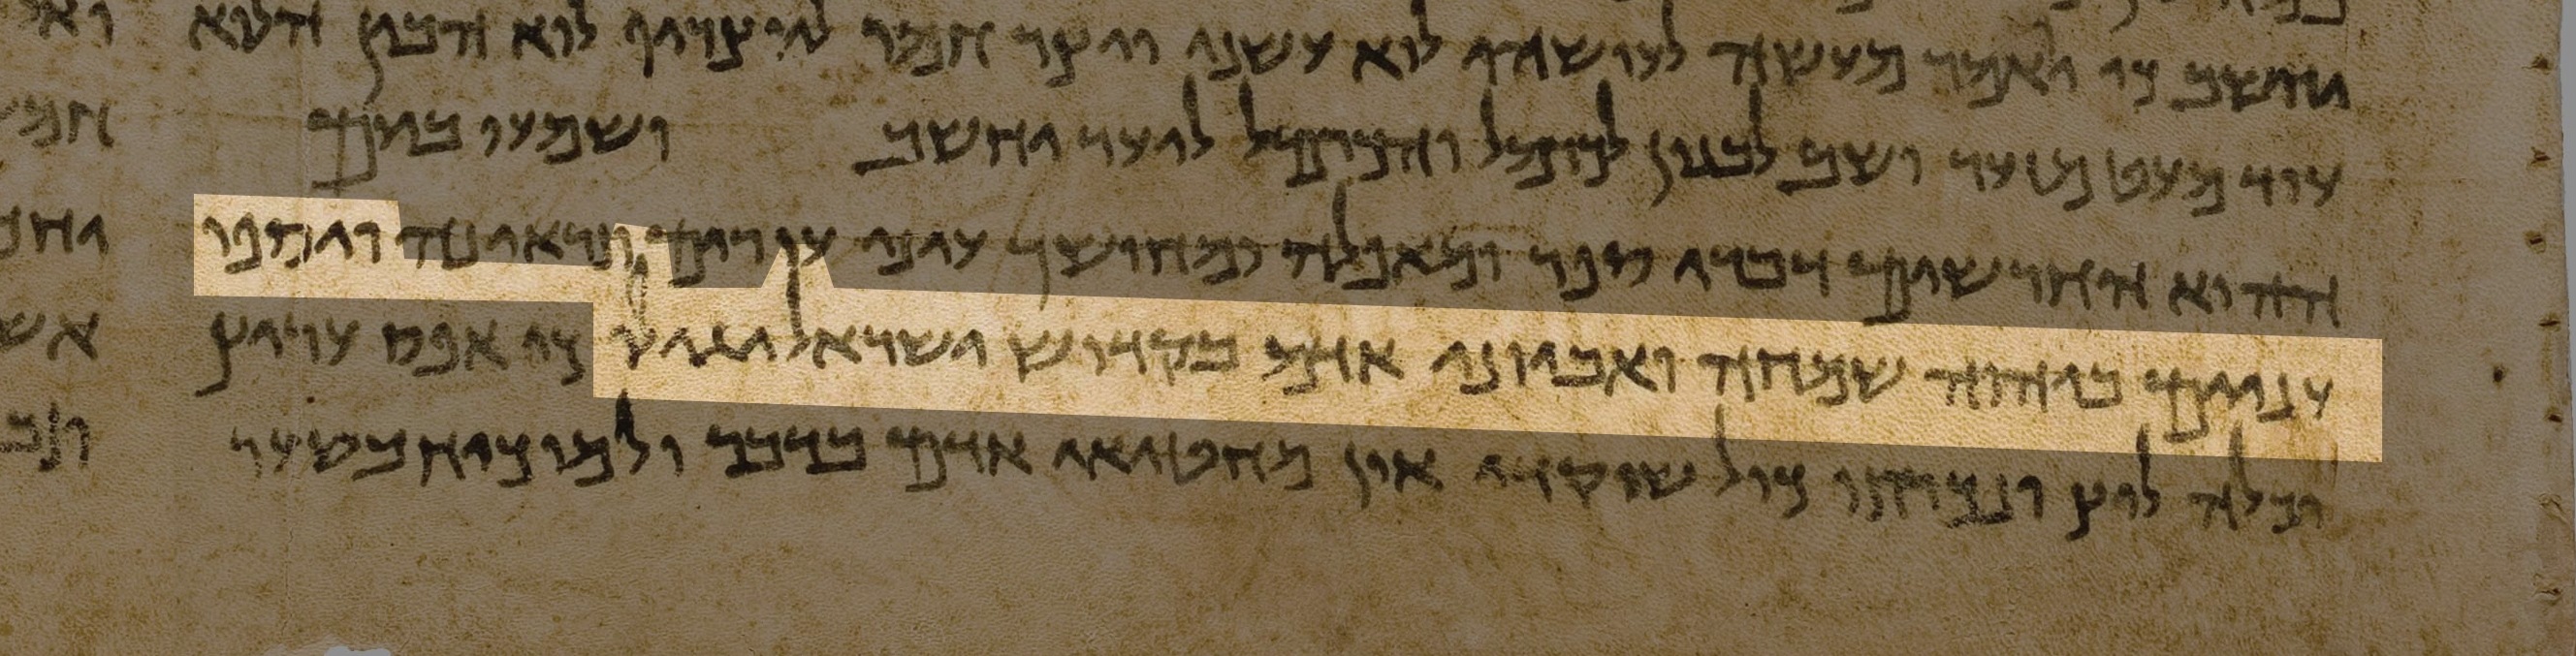 יחשב כי יאמר מעשה לעושהו לוא עשני ויצר חמר ליוצרו לוא הבין הלוא
עוד מעט מזער ושב לבנון לכרמל והכרמל ליער יחשב ושמעו ביום
ההוא החרשים דברי ספר ומאפלה ומחושך עיני עורים תראינה ויספו
ענוים ביהוה שמחה ואביוני אדם בקדוש ישראל יגילו כי אפס עריץ
וכלה לץ ונכרתו כול שוקדי און מחטיאי אדם בדבר ולמוכיח בשער